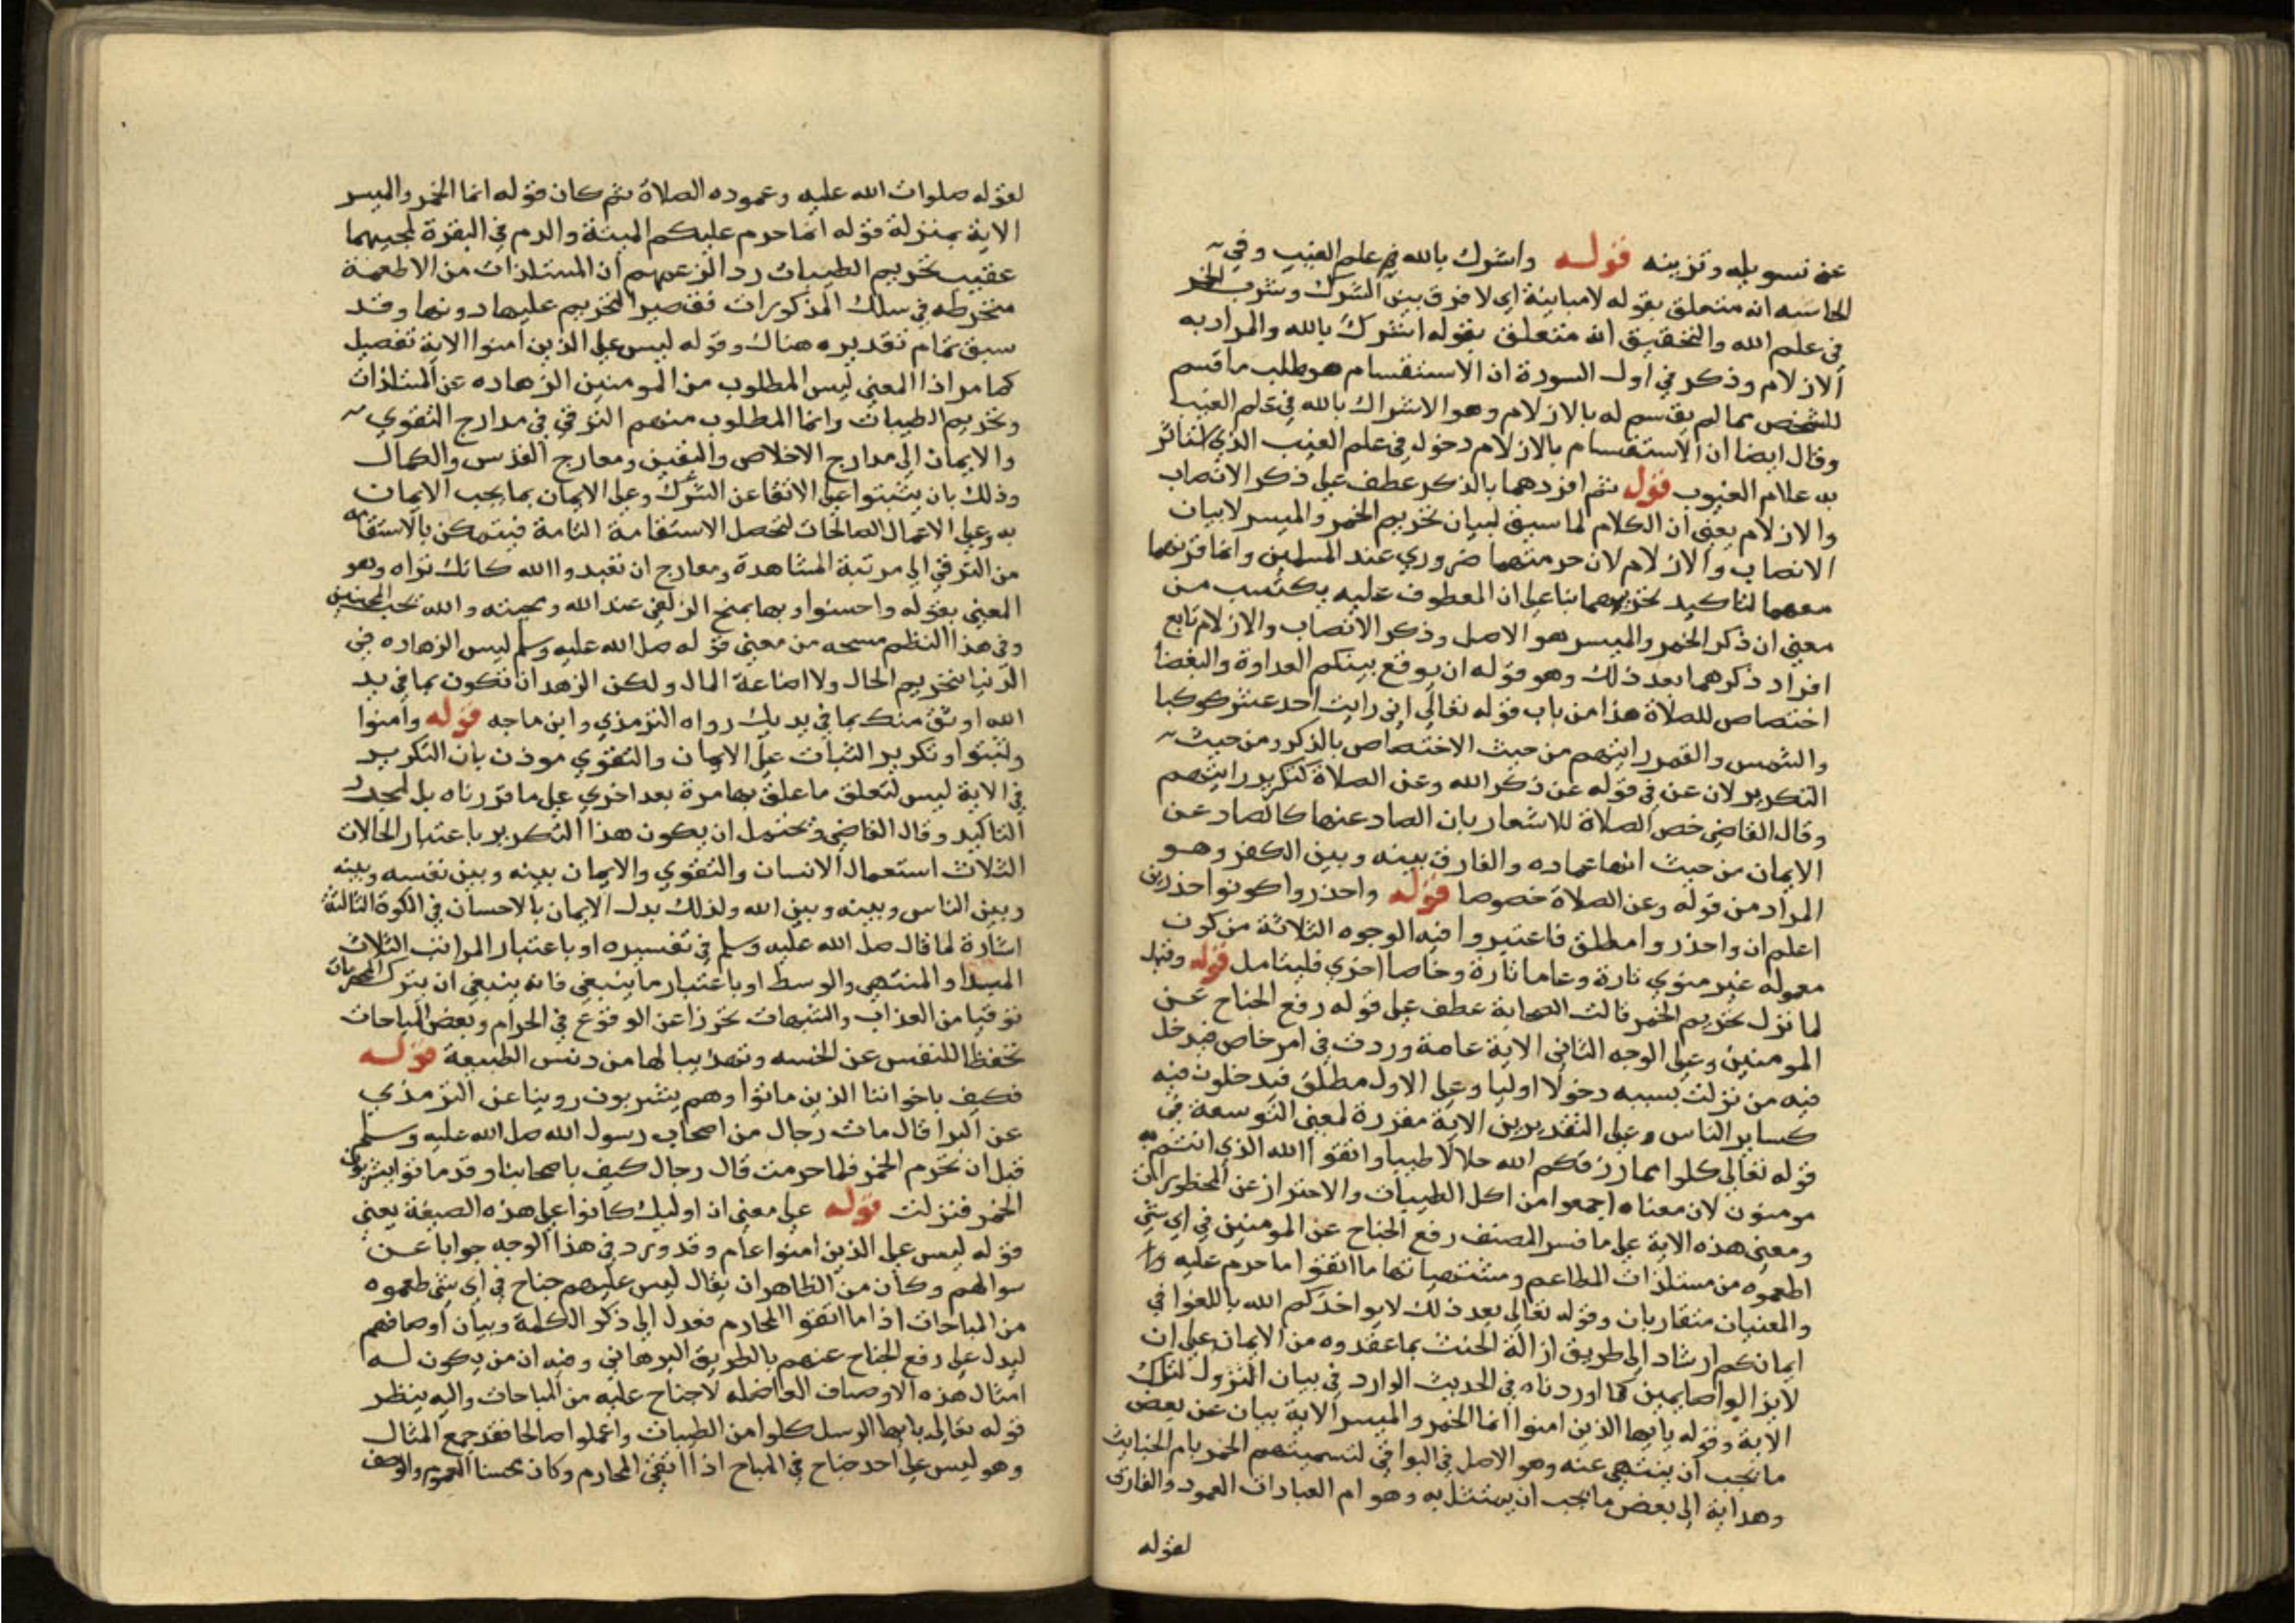 عن تسويله وتزيينه قوله واشرك بالله في علم الغيب وفي
الحاشيه انه متعلق بقوله لا مباينة اي لا فرق بين الشرك وشرب الخمر
في علم الله والتحقيق انه متعلق بقوله اشرك بالله والمراد به
الازلام وذكر في اول السورة ان الاستقسام هو طلب ما قسم
للشخص مما لم يقسم له بالازلام وهو الاشراك بالله في علم الغيب
وقال ايضا ان الاستقسام بالازلام دخول في علم الغيب الذي استاثر
به علام الغيوب قوله ثم افردهما بالذكر عطف على ذكر الانصاب
والازلام يعني ان الكلام لما سيق لبيان تحريم الخمر والميسر لا بيان
الانصاب والازلام لان حرمتهما ضروري عند المسلمين وانما قرنهما
معهما لتاكيد تحريمهما بنا على ان المعطوف عليه يكتسب من
معني ان ذكر الخمر والميسر هو الاصل وذكر الانصاب والازلام تابع
افراد ذكرهما بعد ذلك وهو قوله ان يوقع بينكم العداوة والبغضا
اختصاص للصلاة هذا من باب قوله تعالي اني رايت احد عشر كوكبا
والشمس والقمر رايتهم من حيث الاختصاص بالذكر ومن حيث
التكرير لان عن في قوله عن ذكر الله وعن الصلاة كتكرير رايتهم
وقال القاضي خص الصلاة للاشعار بان الصاد عنها كالصاد عن
الايمان من حيث انها عماده والفارق بينه وبين الكفر وهو
المراد من قوله وعن الصلاة خصوصا قوله واحذروا كونوا حذرين
اعلم ان واحذروا مطلق فاعتبروا فيه الوجوه الثلاثة من كون
معموله غير منوي تارة وعاما تارة وخاصا اخري فليتامل قوله وقيل
لما نزل تحريم الخمر قالت الصحابة عطف على قوله رفع الجناح عن
المومنين وعلى الوجه الثاني الاية عامة وردت في امر خاص فيدخل
فيه من نزلت بسببه دخولا اوليا وعلى الاول مطلق فيدخلون فيه
كساير الناس وعلى التقديرين الاية مقررة لمعني التوسعة في
قوله تعالي كلوا مما رزقكم الله حلالا طيبا واتقوا الله الذي انتم به
مومنون لان معناه اجمعوا من اكل الطيبات والاحتراز عن المحظورات
ومعني هذه الاية على ما فسر المصنف رفع الجناح عن المومنين في اي شي
اطعموه من مستلذات المطاعم ومشتهياتها ما اتقوا ما حرم عليه
والمعنيان متقاربان وقوله تعالي بعد ذلك لا يواخذكم الله باللغوا في
ايمانكم ارشاد الى طريق ازالة الحنث بما عقدوه من الايمان على ان
لا يزالوا صايمين كما اوردناه في الحديث الوارد في بيان النزول لتلك
الاية وقوله يايها الذين امنوا انما الخمر والميسر الاية بيان عن بعض
ما يجب ان ينتهي عنه وهو الاصل في البواقي لتسميتهم الخمر بام الخبايث
وهداية الى بعض ما يجب ان يمتثل به وهو ام العبادات العمود والفارق
لقوله
لقوله صلوات الله عليه وعموده الصلاة ثم كان قوله انما الخمر والميسر
الاية بمنزلة قوله انما حرم عليكم الميتة والدم في البقرة لمجيهما
عقيب تحريم الطيبات ردا لزعمهم ان المستلذات من الاطعمة
منخرطه في سلك المذكورات فقصر التحريم عليها دونها وقد
سبق تمام تقديره هناك وقوله ليس على الذين امنوا الاية تفصيل
كما مر اذا المعني ليس المطلوب من المومنين الزهاده عن المستلذات
وتحريم الطيبات وانما المطلوب منهم الترقي في مدارج التقوي
والايمان الى مدارج الاخلاص واليقين ومعارج القدس والكمال
وذلك بان يثبتوا على الاتقا عن الشرك وعلى الايمان بما يجب الايمان
به وعلى الاعمال الصالحات لتحصل الاستقامة التامة فيتمكن بالاستقامة
من الترقي الى مرتبة المشاهدة ومعارج ان تعبدوا الله كانك تراه وهو
المعني بقوله واحسنوا وبها يمنح الزلفى عند الله ومحبته والله يحب المحسنين
وفي هذا النظم مسحه من معني قوله صلى الله عليه وسلم ليس الزهاده في
الدنيا بتحريم الحال ولا اضاعة المال ولكن الزهد ان تكون بما في يد
الله اوثق منك بما في يديك رواه الترمذي وابن ماجه قوله وامنوا
وثبتوا وتكرير الثبات على الايمان والتقوي موذن بان التكرير
في الاية ليس لتعلق ما علق بها مرة بعد اخري على ما قررناه بل لمجرد
التاكيد وقال القاضي ويحتمل ان يكون هذا التكرير باعتبار الحالات
الثلاث استعمال الانسان والتقوي والايمان بينه وبين نفسه وبينه
وبين الناس وبينه وبين الله ولذلك بدل الايمان بالاحسان في الكرة الثالثة
اشارة لما قال صلى الله عليه وسلم في تفسيره او باعتبار المراتب الثلاث
المبدا والمنتهي والوسط او باعتبار ما ينبغي فانه ينبغي ان يترك المحرمات
توقيا من العذاب والشبهات تحرزا عن الوقوع في الحرام وبعض المباحات
تحفظا للنفس عن الخسه وتهذيبا لها من دنس الطبيعة قوله
فكيف باخواننا الذين ماتوا وهم يشربون روينا عن الترمذي
عن البرا قال مات رجال من اصحاب رسول الله صلى الله عليه وسلم
قبل ان تحرم الخمر فلما حرمت قال رجال كيف باصحابنا وقد ماتوا يشربون
الخمر فنزلت قوله على معني ان اوليك كانوا على هذه الصيغة يعني
قوله ليس على الذين امنوا عام وقد ورد في هذا الوجه جوابا عن
سوالهم وكان من الظاهر ان يقال ليس عليهم جناح في اي شي طعموه
من المباحات اذا ما اتقوا المحارم فعدل الى ذكر الكلمة وبيان اوصافهم
ليدل على رفع الجناح عنهم بالطريق البرهاني وفيه ان من يكون له
امثال هذه الاوصاف الفاضله لا جناح عليه من المباحات واليه ينظر
قوله تعالي يايها الرسل كلوا من الطيبات واعملوا صالحا فقد جمع المثال
وهو ليس على احد جناح في المباح اذا اتقي المحارم وكان محسنا العموم والوصف